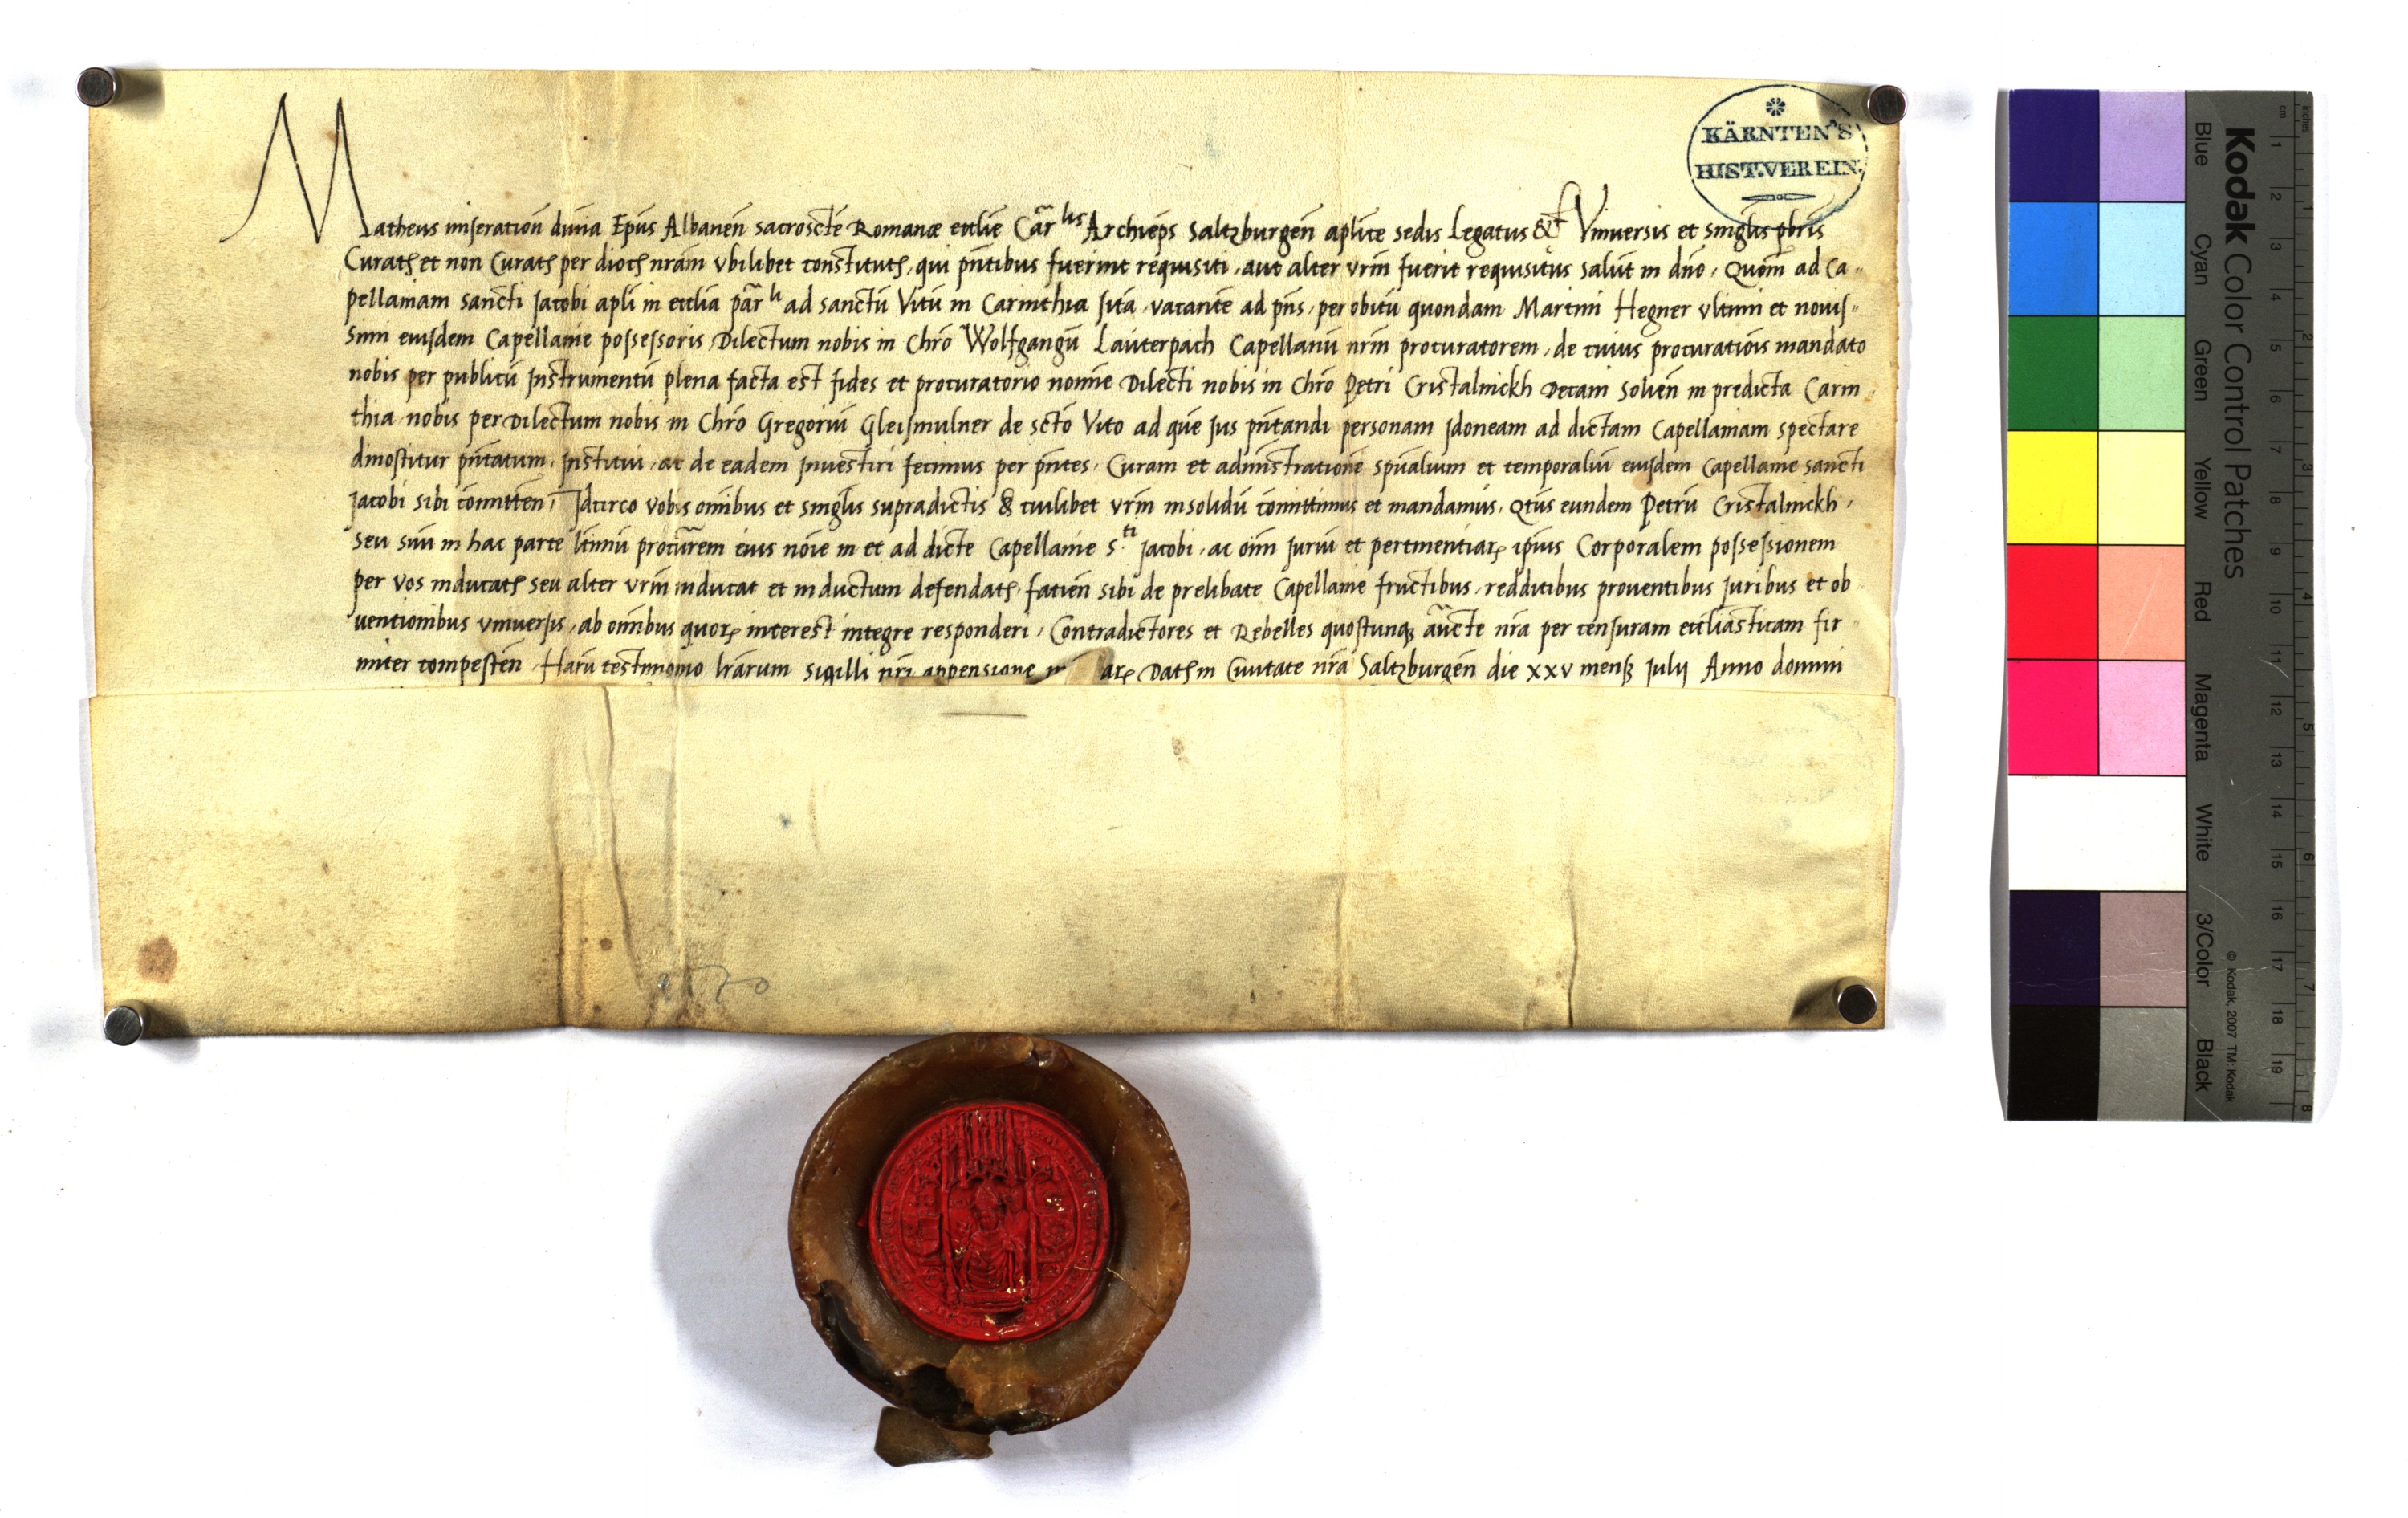 KÄRNTEN'S
HIST.VEREIN.
Matheus miseration̄ diuīa Ep̄us Albaneñ sacroscte Romanæ ecclīe Car̄lis Archiep̄s Saltzburgeñ aplīce sedis Legatus &c̄ Vniuersis et singlīs pb̄ris
Curatꝭ et non Curatꝭ per diocꝭ nrām vbilibet constitutꝭ, qui pn̄tibus fuerint requisiti, aut alter vrm̄ fuerit requisitus salut̄ in dn̄o, Quom̄ ad Ca-
pellaniam sancti Jacobi apl̄i in ecclīa par̄li ad sanctū Vitū in Carinthia sita, vacante ad pn̄s, per obitū quondam Martini Hegner vltimi et nouis-
simi eiusdem Capellanie possessoris, Dilectum nobis in Chrō Wolfgangū Lauterpach Capellanū nrm̄ procuratorem, de cuius procuratiōis mandato
nobis per publicū Instrumentū plena facta est fides et procuratorio nomīe Dilecti nobis in Chrō Petri Cristalnickh Decani Solieñ in predicta Carin
thia nobis per Dilectum nobis in Chrō Gregoriū Gleismulner de sctō Vito ad quē Jus pn̄tandi personam Jdoneam ad dictam Capellaniam spectare
dinoscitur pn̄tatum, Jnstitui, ac de eadem Jnuestiri fecimus per pn̄tes, Curam et administrationē spūalium et temporaliū eiusdem Capellanie sancti
Jacobi sibi com̄itteñ, Jdcirco vobis om̄ibus et singlīs supradictis & cuilibet vrm̄ insolidū com̄ittimus et mandamus, Qtūs eundem Petrū Cristalnickh,
seu suū in hac parte ltīmū procūrem eius nōie in et ad dicte Capellanie s.ti Jacobi, ac oīm Juriū et pertinentiarꝝ ip̄ius Corporalem possessionem
per vos inducatꝭ seu alter vrm̄ inducat et inductum defendatꝭ, facieñ sibi de prelibate Capellanie fructibus, redditibus prouentibus Juribus et ob
uentionibus vniuersis, ab om̄ibus quorꝝ interest integre responderi, Contradictores et Rebelles quoscunqꝫ auc̄te nrā per censuram eccliāsticam fir
miter compesceñ, Harū testimonio lrārum sigilli nrī appensione arꝝ Datꝭ in Ciuitate nrā Saltzburgeñ die xxv mensꝭ Julij Anno domini
Kodak Color Control Patches
Blue Cyan Green Yellow Red Magenta White 3/Color Black
© Kodak, 2007 TM: Kodak
inches 1 2 3 4 5 6 7 8
cm 1 2 3 4 5 6 7 8 9 10 11 12 13 14 15 16 17 18 19